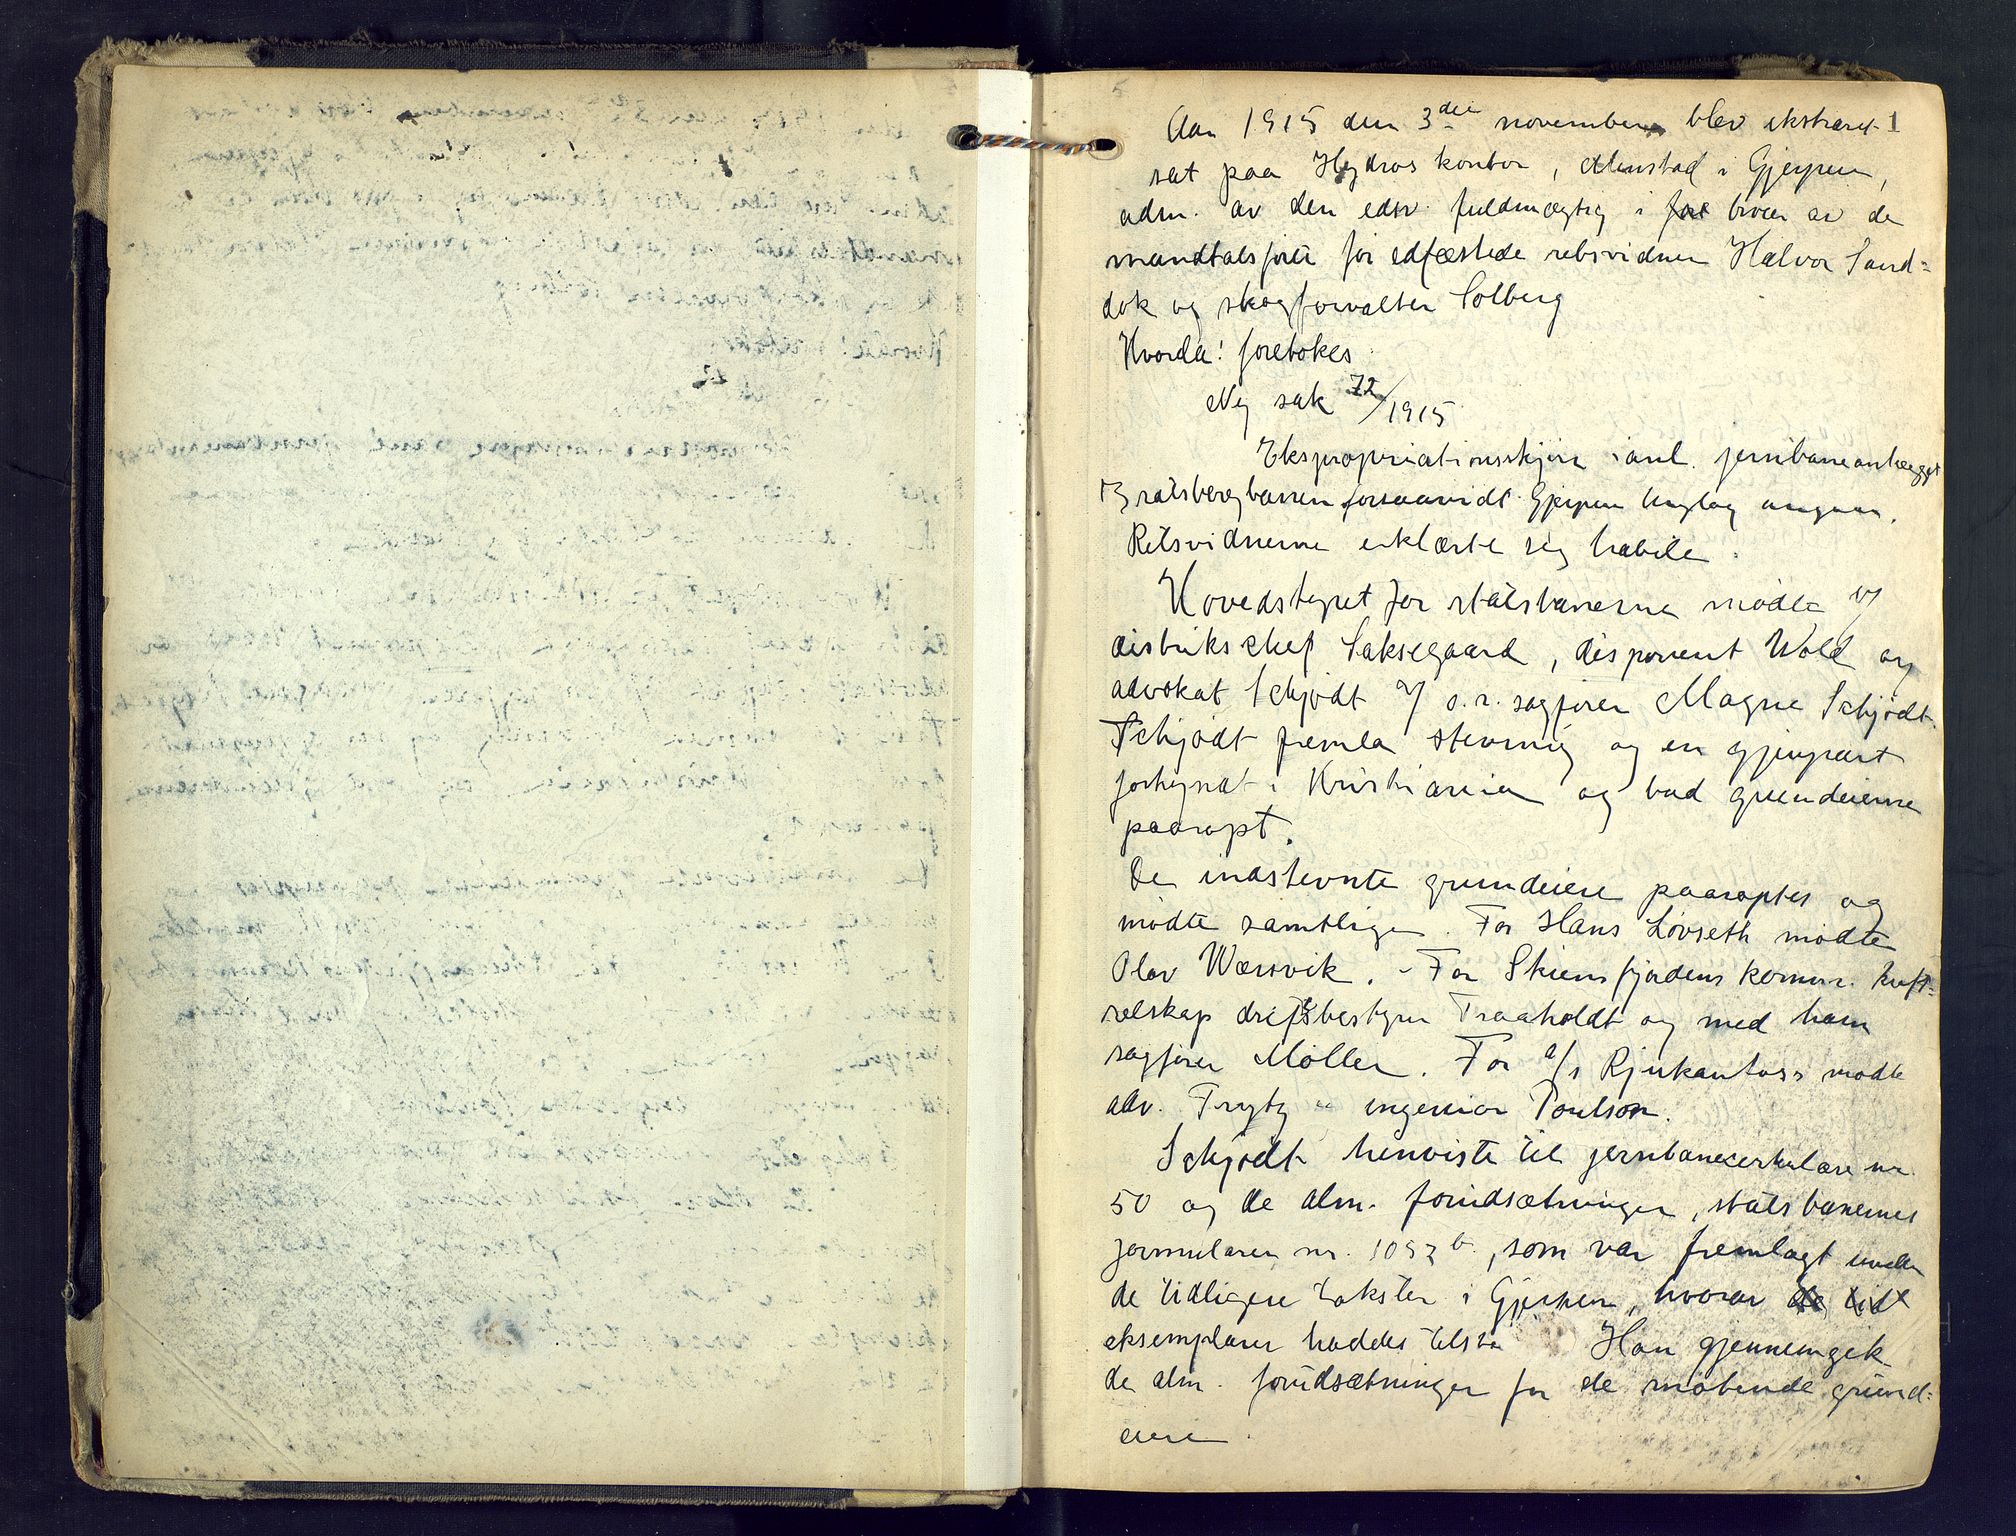 Aar 1915 den 3die november blev ekstraret 1
sat paa Hydros kontor, Menstad i Gjerpen,
adm. av den edsv. fuldmægtig i bvær av de
mandtalsførte før edfæstede retsvidner Halvor Sand=
dok og skogforvalter Solberg
Hvorda! foretokes
Ny sak 72/1915
Ekspropriationsskjøn i anl. jernbaneanlægget
Bratsbergbanen forsaavidt Gjerpen tinglag angaar.
Retsvidnerne erklærte sig habile.
Hovedstyret for statsbanerne mødte v/
distrikschef Saksegaard, disponent Wold og
advokat Schjødt v/ o.r. sagfører Magne Schjødt.
Schjødt fremla stevning og en gjenpart
forkynt i Kristiania og bad grundeierne
paaropt.
De indstevnte grundeiere paaroptes og
mødte samtlige. For Hans Løvseth mødte
Olav Wærsvik. - For Skiensfjordens komm. kraft=
selskap driftsbestyrer Traaholdt og med ham
sagfører Møller. For a/s Rjukanfoss mødte
adv. Frygty ingeniør Poulson.
Schjødt henviste til jernbanecirkulære nr.
50 og de alm. forudsætninger, statsbanernes
formularer nr. 1093 b., som var fremlagt under
de tidligere takster i Gjerpen, hvorav de tidl
eksemplarer haddes tilstæ Han gjennemgik
de alm. forudsætninger for de møtende grund=
eiere.